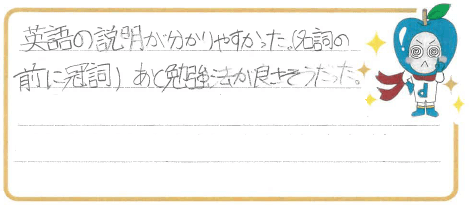 英語の説明が分かりやすかった。(名詞の
前に冠詞) あと勉強法が良さそうだった。
d